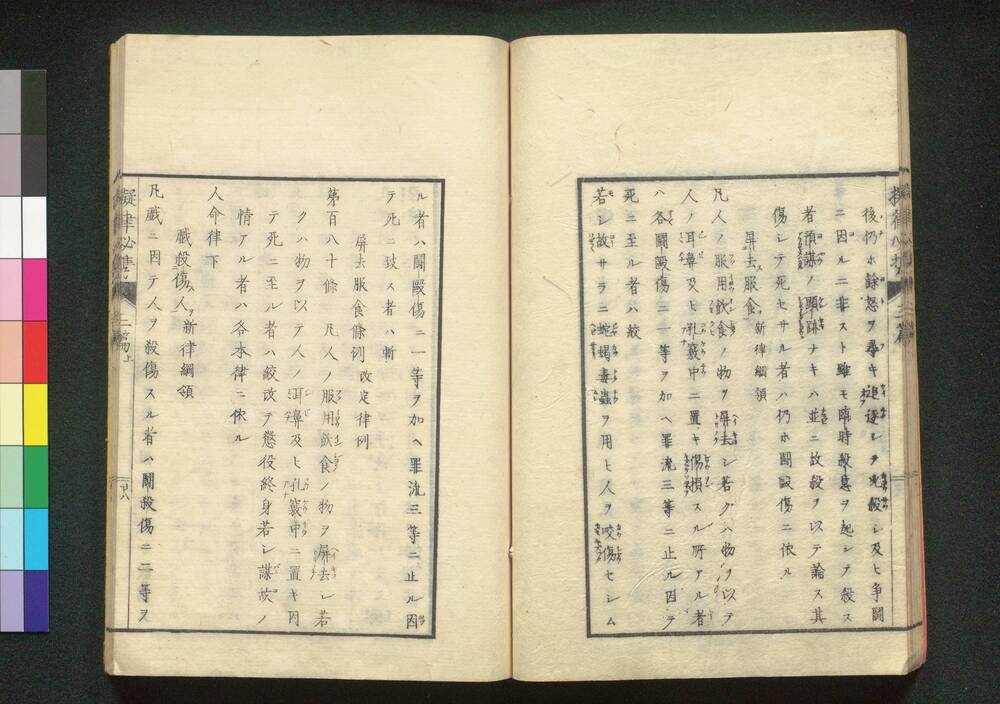 後仍ホ餘怒ヲ尋キ追逐シテ死殺シ及ヒ争鬪
ニ因ルニ非スト雖モ臨時殺意ヲ起シテ殺ス
者預謀ノ顕跡ナキハ並ニ故殺ヲ以テ論ス其
傷シテ死セサル者ハ仍ホ鬪毆傷ニ依ル
屏去服食 新律綱領
凡人ノ服用飲食ノ物ヲ屏去シ若クハ物ヲ以テ
人ノ耳鼻及ヒ孔竅中ニ置キ傷損スル所アル者
ハ各鬪毆傷ニ一等ヲ加ヘ罪流三等ニ止ル因テ
死ニ至ル者ハ絞
若シ故サラニ蛇蝎毒蟲ヲ用ヒ人ヲ咬傷セシム
ル者ハ鬪毆傷ニ一等ヲ加ヘ罪流三等ニ止ル因
テ死ニ致ス者ハ斬
屏去服食條例 改定律例
第百八十條 凡人ノ服用飲食ノ物ヲ屏去シ若
クハ物ヲ以テ人ノ耳鼻及ヒ孔竅中ニ置キ因
テ死ニ至ル者ハ絞改テ懲役終身若シ謀故ノ
情アル者ハ各本律ニ依ル
人命律下
戲殺傷人 新律綱領
凡戲ニ因テ人ヲ殺傷スル者ハ鬪殺傷ニ二等ヲ
擬律必携
廿八